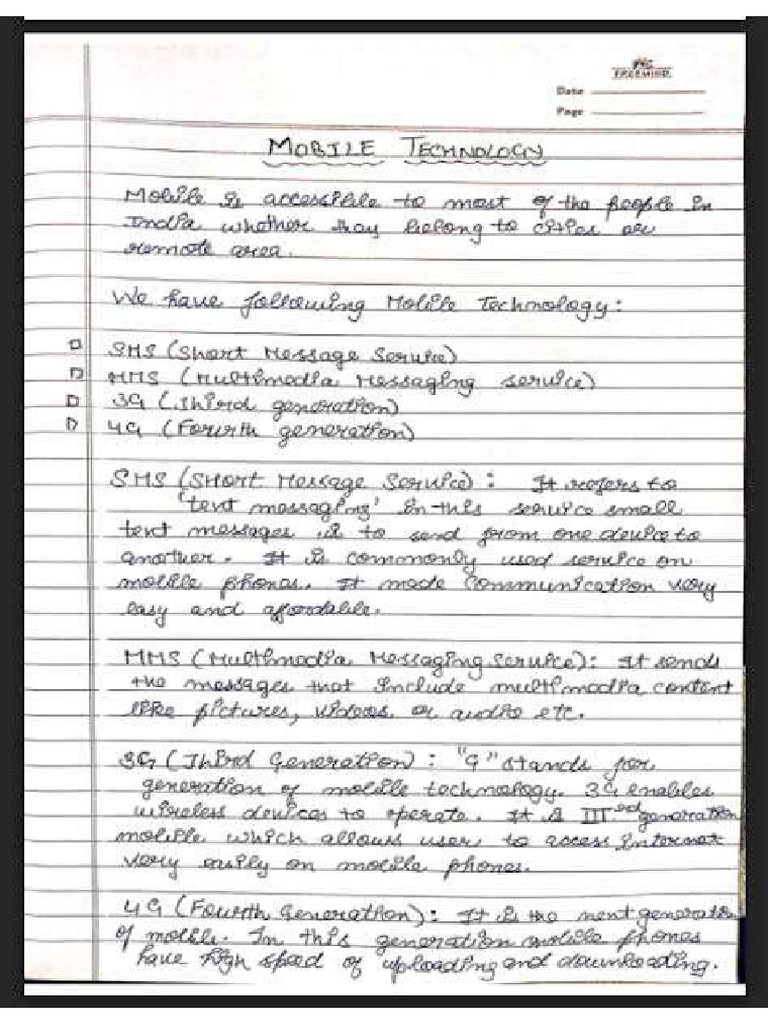 FREEMIND
Date
Page
MOBILE TECHNOLOGY
Mobile is accessible to most of the people in
India whether they belong to cities or
remote area.
We have following Mobile Technology:
SMS (Short Message Service)
MMS (Multimedia Messaging service)
3G (Third generation)
4G (Fourth generation)
SMS (Short Message Service) : It refers to
'text messaging' in this service small
text messages is to send from one device to
another. It is commonly used service on
mobile phones. It made communication very
easy and affordable.
MMS (Multimedia Messaging Service): It sends
the messages that include multimedia content
like pictures, videos or audio etc.
3G (Third Generation) : "G" stands for
generation of mobile technology. 3G enables
wireless devices to operate. It is III rd generation
mobile which allows user to access internet
very easily on mobile phones.
4G (Fourth Generation): It is the next generation
of mobile. In this generation mobile phones
have high speed of uploading and downloading.